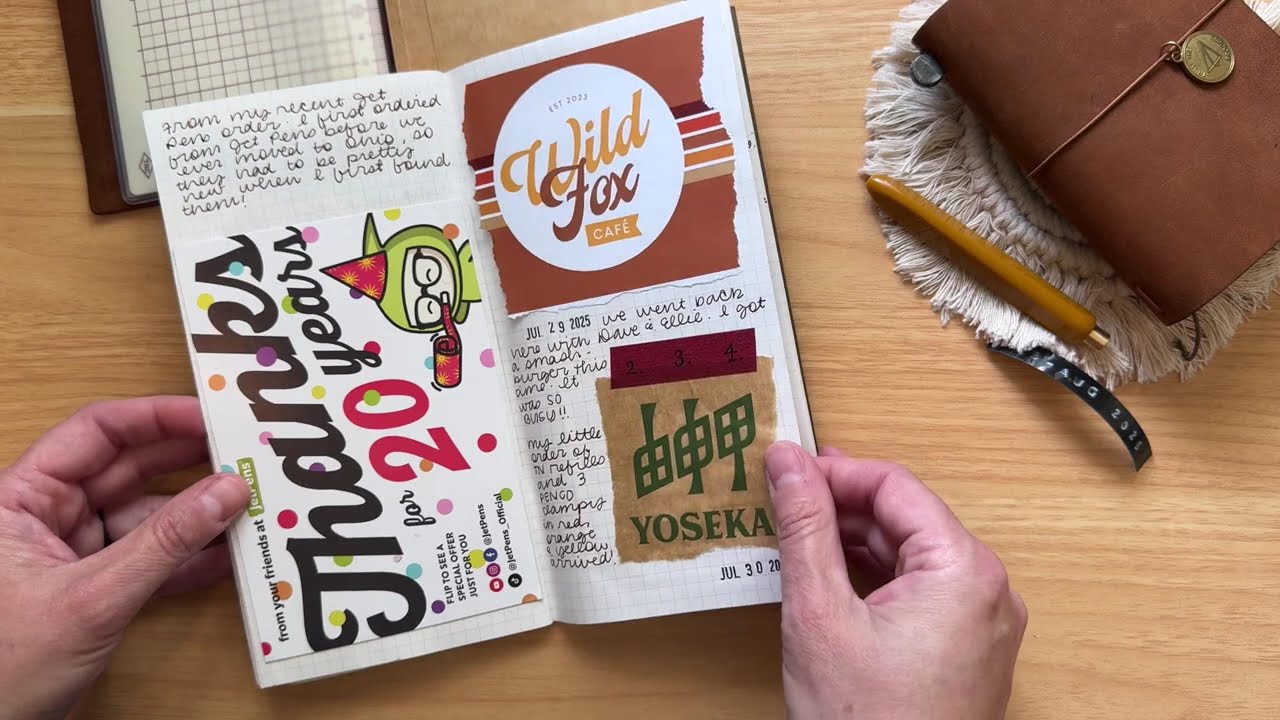 from my recent jet
pens order. I first ordered
from jet pens before we
ever moved to Ohio, so
they had to be pretty
new when I first found
them!
Thanks
for 20 years
from your friends at JetPens
FLIP TO SEE A
SPECIAL OFFER
JUST FOR YOU
@JetPens
@JetPens_Official
EST 2023
Wild
Fox
CAFÉ
JUL 29 2025 we went back
here with Dave & Ellie. I got
a smash
burger this
time. It
was SO
BUSY!!
2. 3. 4.
my little
order of
TN refills
and 3
PENCO
clampys
in red,
orange
& yellow
arrived.
YOSEKA
JUL 30 20
AUG 2025